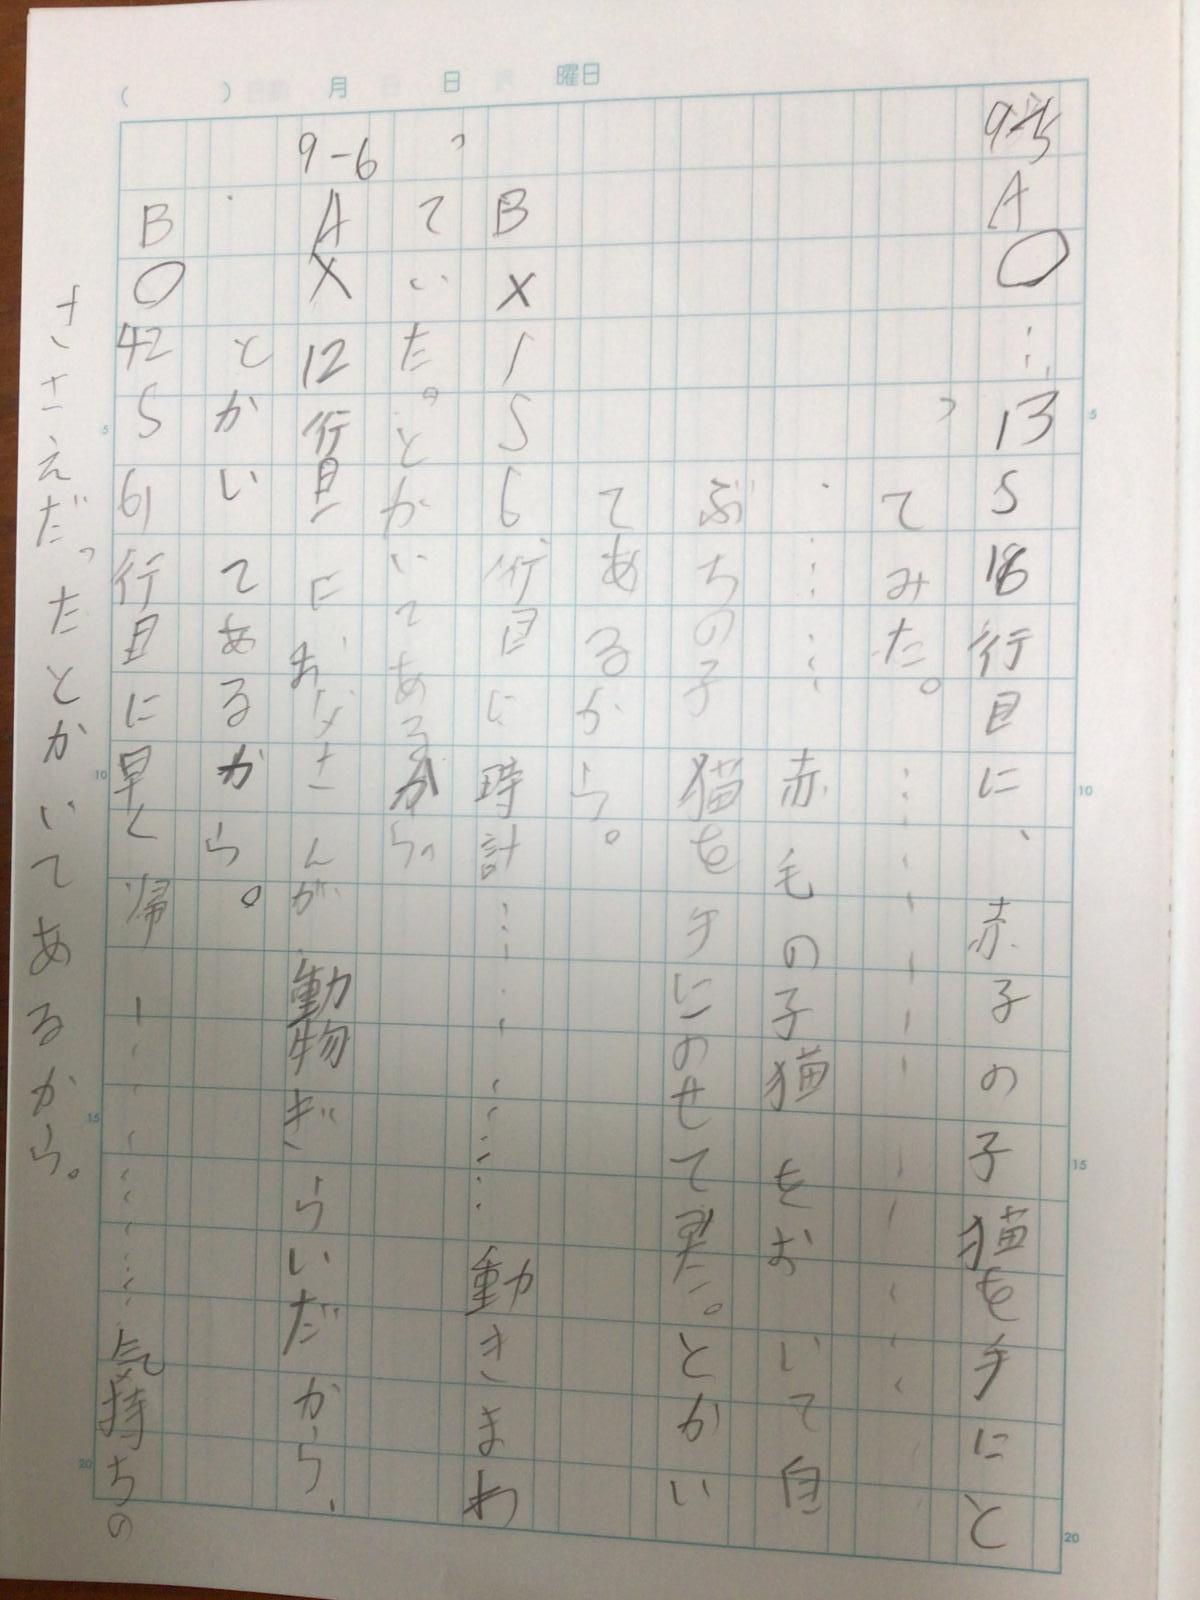 ( ) 月 日 曜日
9-5 A ○ … 13 S 18 行目に、赤子の子猫を手にと
ってみた。
… 赤毛の子猫をおいて白
ぶちの子猫を手にのせて見た。とかい
てあるから。
B × 1 S 6 行目に時計 … 動きまわ
っていた。とかいてあるから。
9-6 A × 12 行目にお父さんが動物ぎらいだから、
とかいてあるから。
B ○ 42 S 61 行目に早く帰 … 気持ちの
ささえだったとかいてあるから。
5
10
15
20
5
10
15
20